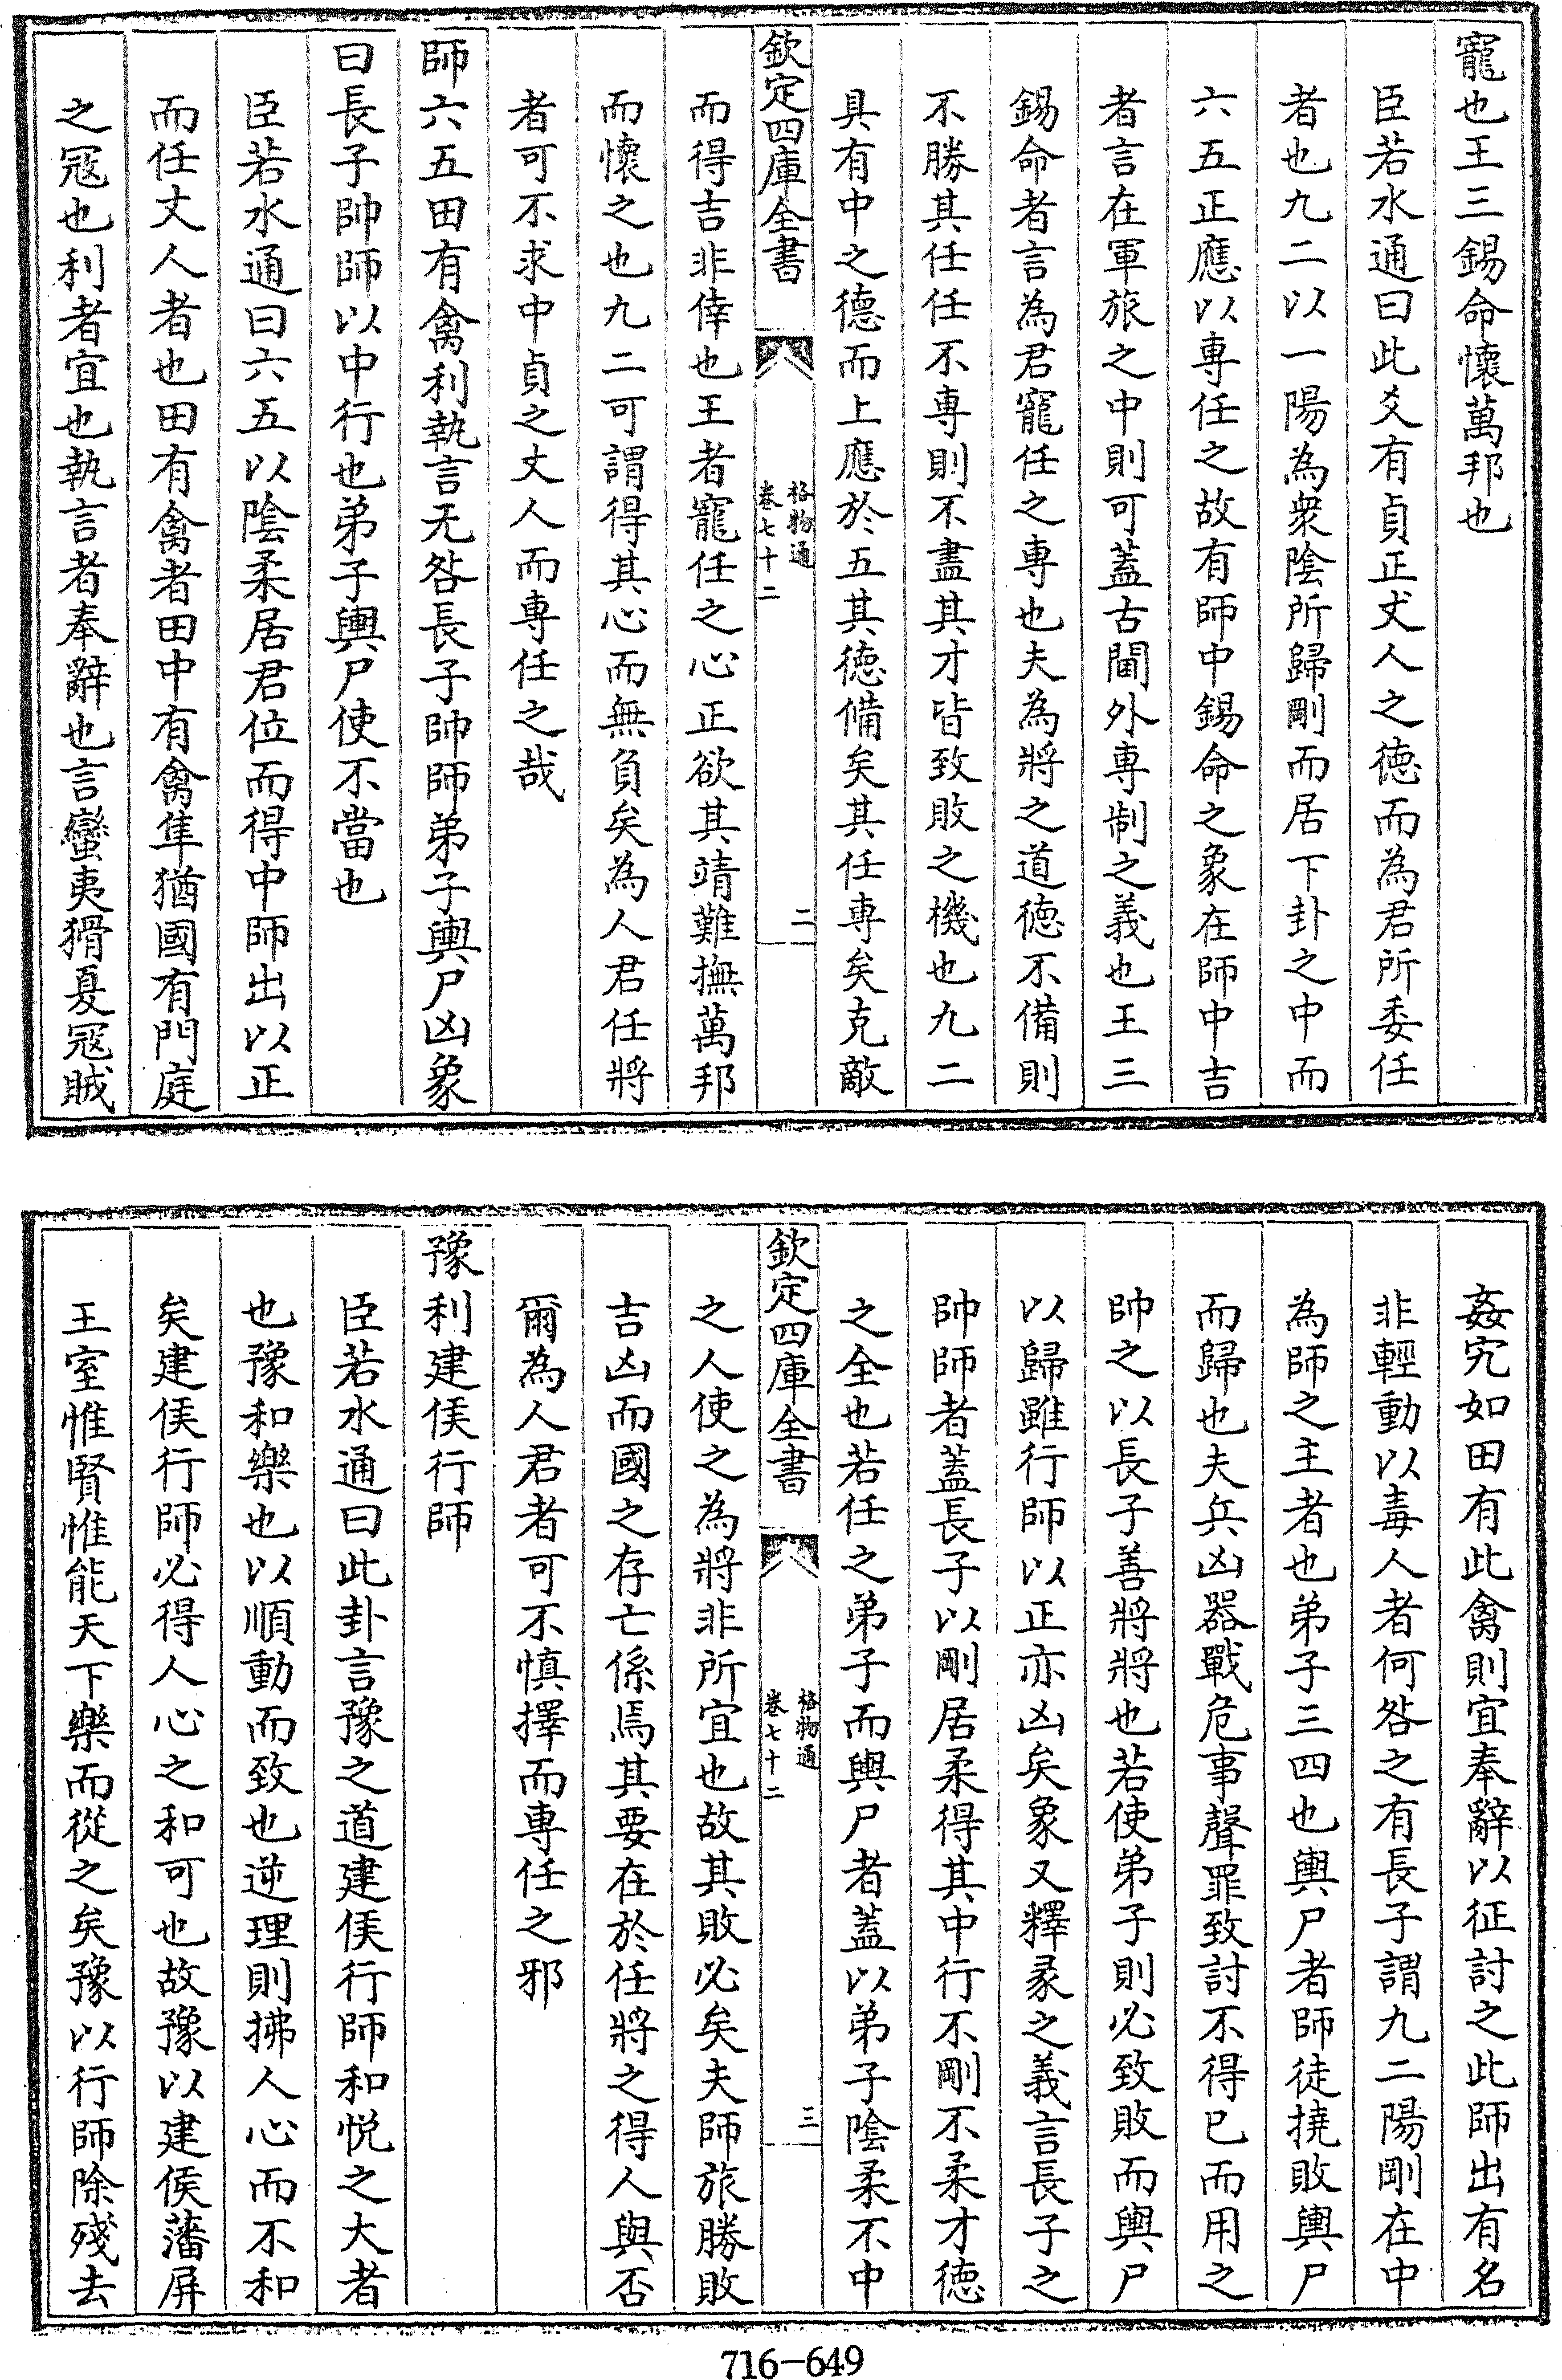 寵也王三錫命懷萬邦也
臣若水通曰此爻有貞正丈人之徳而為君所委任
者也九二以一陽為衆陰所歸剛而居下卦之中而
六五正應以専任之故有師中錫命之象在師中吉
者言在軍旅之中則可蓋古閫外専制之義也王三
錫命者言為君寵任之専也夫為將之道徳不備則
不勝其任任不専則不盡其才皆致敗之機也九二
具有中之德而上應於五其徳備矣其任専矣克敵
欽定四庫全書
格物通
卷七十二
二
而得吉非倖也王者寵任之心正欲其靖難撫萬邦
而懷之也九二可謂得其心而無負矣為人君任將
者可不求中貞之丈人而専任之哉
師六五田有禽利執言无咎長子帥師弟子輿尸凶象
曰長子帥師以中行也弟子輿尸使不當也
臣若水通曰六五以陰柔居君位而得中師出以正
而任丈人者也田有禽者田中有禽隼猶國有門庭
之冦也利者宜也執言者奉辭也言蠻夷猾夏冦賊
姦宄如田有此禽則宜奉辭以征討之此師出有名
非輕動以毒人者何咎之有長子謂九二陽剛在中
為師之主者也弟子三四也輿尸者師徒撓敗輿尸
而歸也夫兵凶器戰危事聲罪致討不得已而用之
帥之以長子善將將也若使弟子則必致敗而輿尸
以歸雖行師以正亦凶矣象又釋彖之義言長子之
帥師者蓋長子以剛居柔得其中行不剛不柔才徳
之全也若任之弟子而輿尸者蓋以弟子陰柔不中
欽定四庫全書
格物通
卷七十二
三
之人使之為將非所宜也故其敗必矣夫師旅勝敗
吉凶而國之存亡係焉其要在於任將之得人與否
爾為人君者可不慎擇而専任之邪
豫利建侯行師
臣若水通曰此卦言豫之道建侯行師和悦之大者
也豫和樂也以順動而致也逆理則拂人心而不和
矣建侯行師必得人心之和可也故豫以建侯藩屏
王室惟賢惟能天下樂而從之矣豫以行師除殘去
716-649